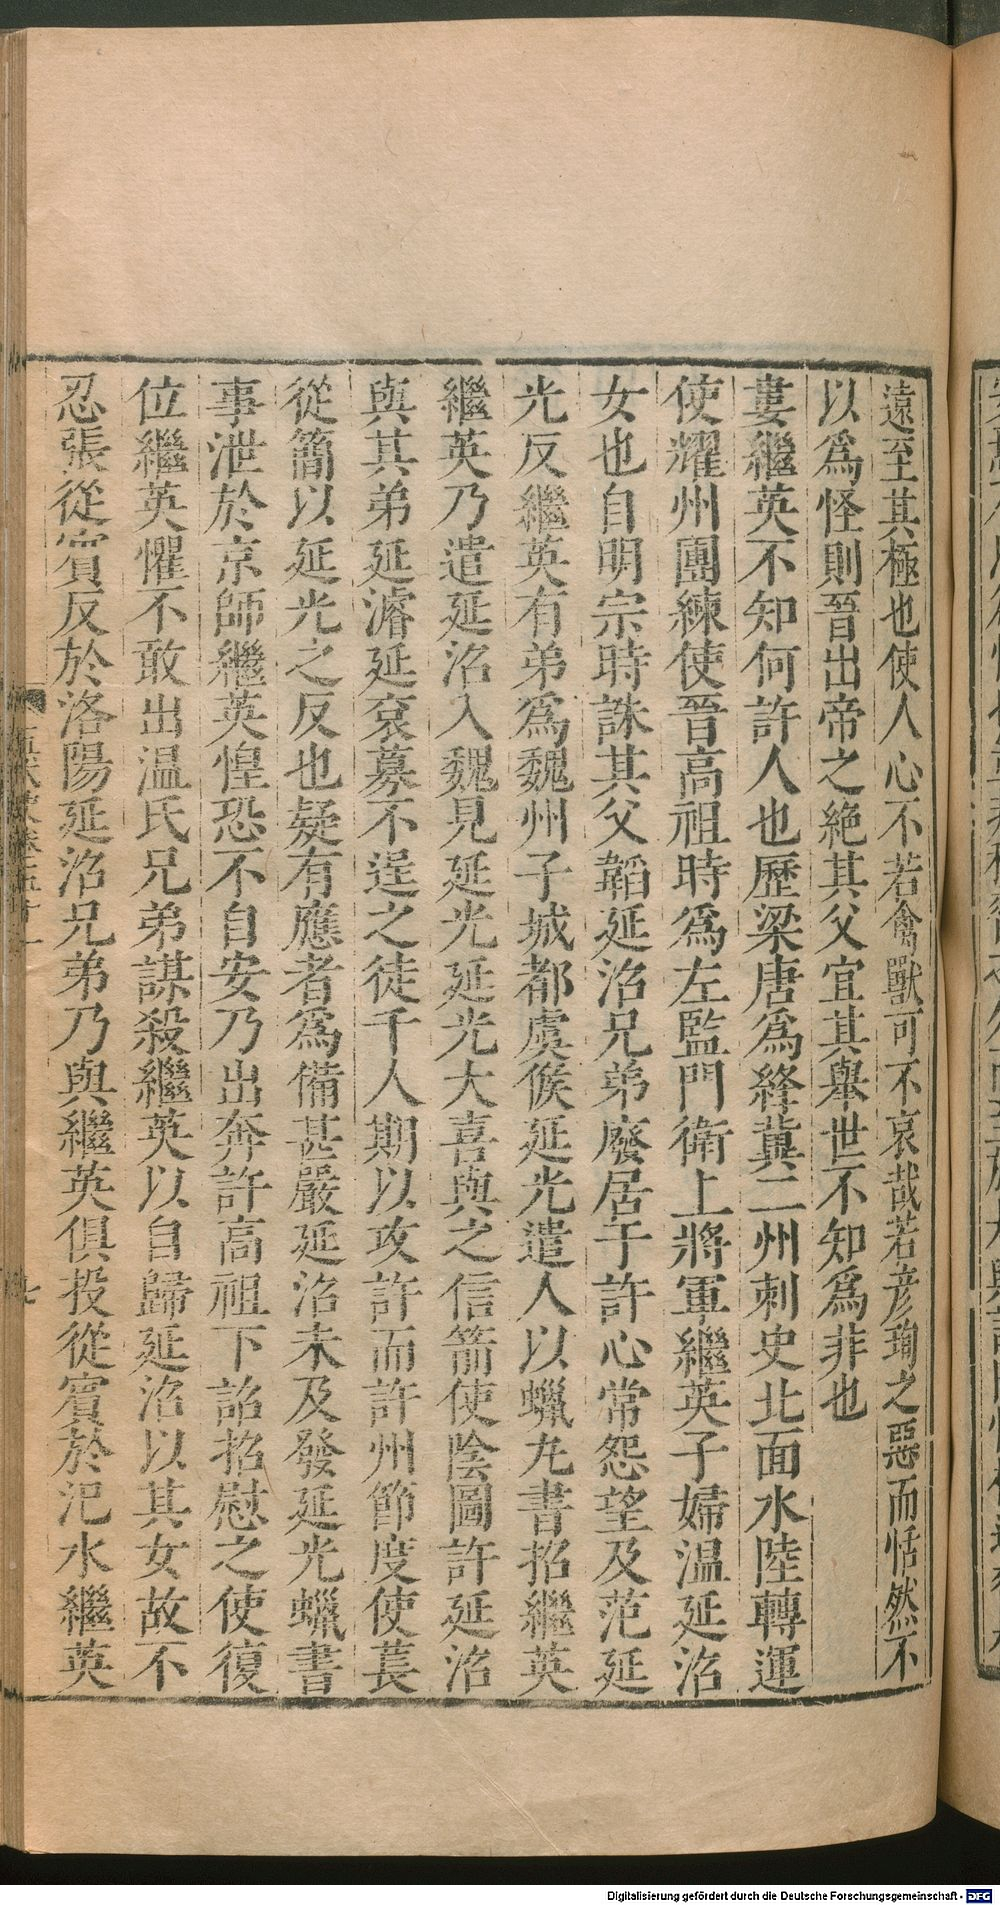 遠至其極也使人心不若禽獸可不哀哉若彥珣之惡而恬然不
以爲怪則晉出帝之絶其父宜其舉世不知爲非也
婁繼英不知何許人也歷梁唐爲絳冀二州刺史北面水陸轉運
使耀州團練使晉高祖時爲左監門衛上將軍繼英子婦温延沼
女也自明宗時誅其父韜延沼兄弟廢居于許心常怨望及范延
光反繼英有弟爲魏州子城都虞候延光遣人以蠟丸書招繼英
繼英乃遣延沼入魏見延光延光大喜與之信箭使陰圖許延沼
與其弟延濬延袞募不逞之徒千人期以攻許而許州節度使萇
從簡以延光之反也疑有應者爲備甚嚴延沼未及發延光蠟書
事泄於京師繼英惶恐不自安乃出奔許高祖下詔招慰之使復
位繼英懼不敢出温氏兄弟謀殺繼英以自歸延沼以其女故不
忍張從賓反於洛陽延沼兄弟乃與繼英俱投從賓於汜水繼英
五代史卷五十一
七
Digitalisierung gefördert durch die Deutsche Forschungsgemeinschaft - DFG